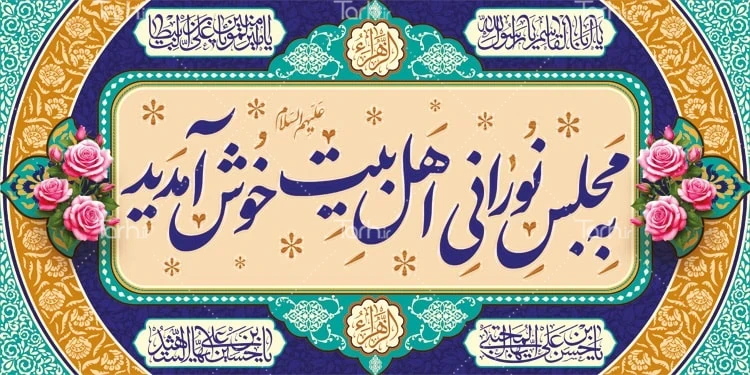 یا اباالقاسم یا رسول الله
الزهراء
یا امیرالمؤمنین یا علی بن ابیطالب
علیهم السلام
به مجلس نورانی اهل بیت خوش آمدید
یا حسن بن علی ایها المجتبی
الزهراء
یا حسین بن علی ایها الشهید